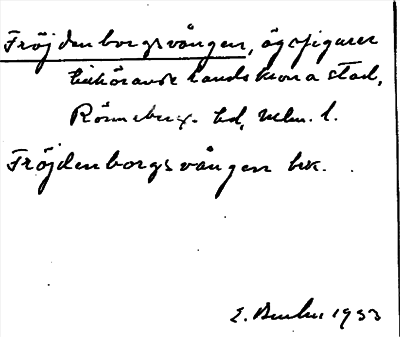 Fröjdenborgsvången, ägofigurer
tillhörande Landskrona stad,
Rönneberg. hd, Mlm. l.
Fröjdenborgsvången bk.
E. 1933